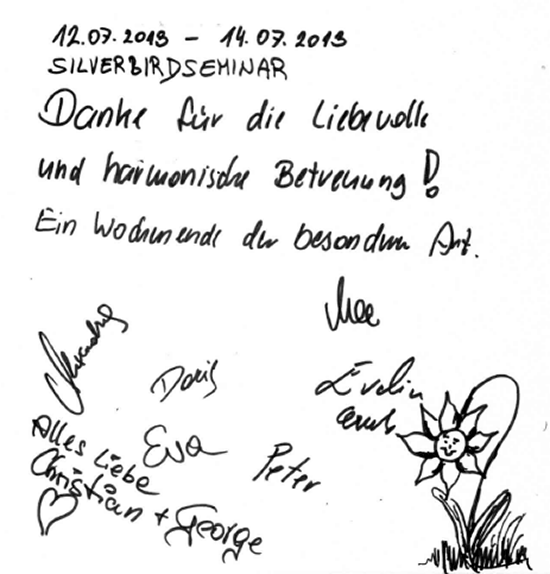 12.07.2013 - 14.07.2013
SILVERBIRDSEMINAR
Danke für die Liebevolle
und harmonische Betreuung!
Ein Wochenende der besonderen Art.
Doris
Evelin
Alles Liebe
Eva
Peter
Christian + George